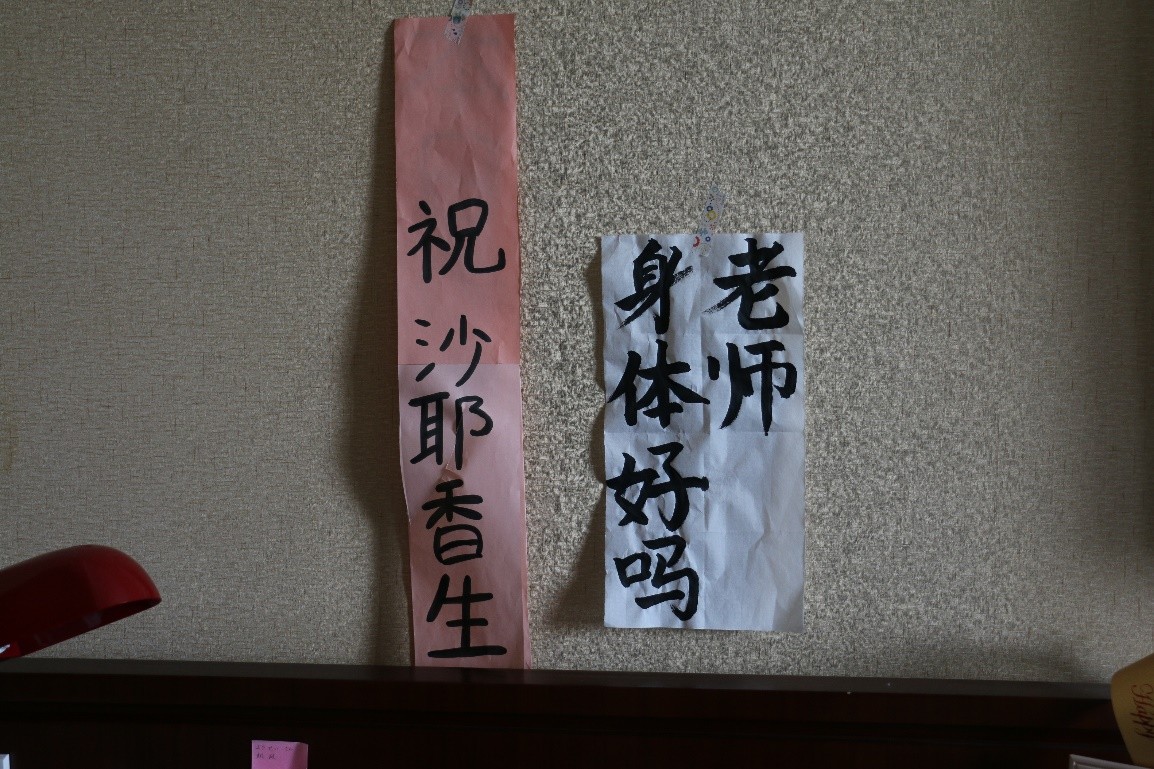 祝 沙耶香生
老师
身体好吗
Happy